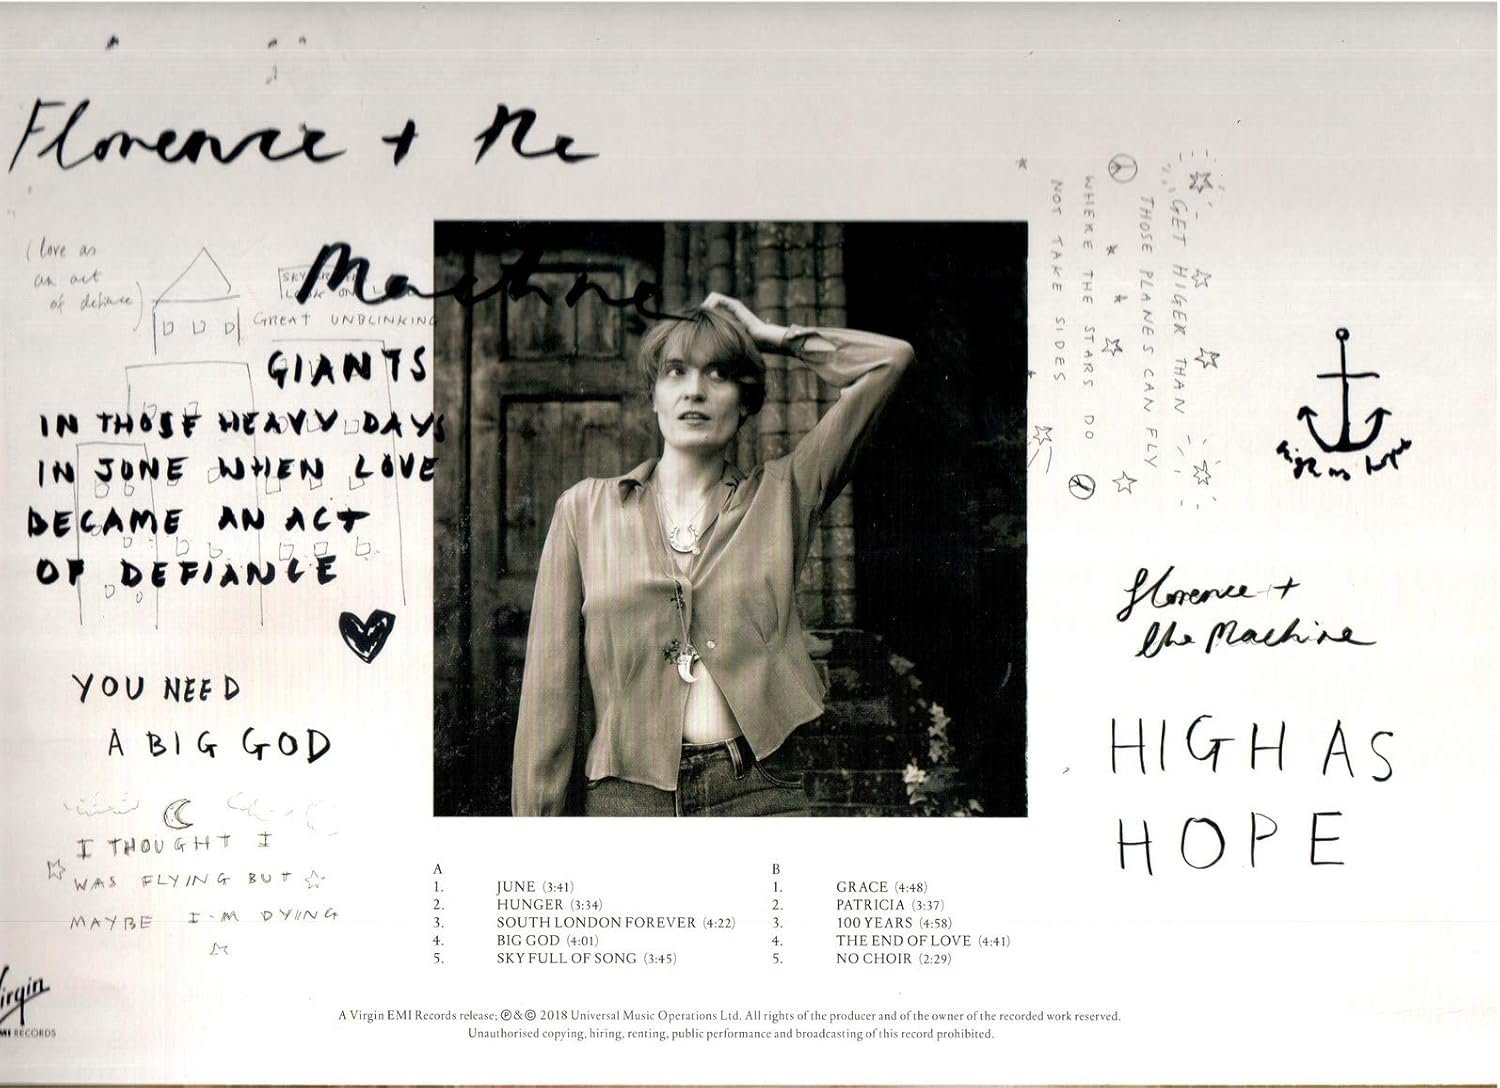 Florence + the
Machine
(love as
an act
of defiance)
GREAT UNBLINKING
GIANTS
IN THOSE HEAVY DAYS
IN JUNE WHEN LOVE
BECAME AN ACT
OF DEFIANCE
YOU NEED
A BIG GOD
I THOUGHT I
WAS FLYING BUT
MAYBE I-M DYING
Virgin
EMI RECORDS
A
1. JUNE (3:41)
2. HUNGER (3:34)
3. SOUTH LONDON FOREVER (4:22)
4. BIG GOD (4:01)
5. SKY FULL OF SONG (3:45)
B
1. GRACE (4:48)
2. PATRICIA (3:37)
3. 100 YEARS (4:58)
4. THE END OF LOVE (4:41)
5. NO CHOIR (2:29)
GET HIGER THAN
THOSE PLANES CAN FLY
WHERE THE STARS DO
NOT TAKE SIDES
high as hope
florence +
the Machine
HIGH AS
HOPE
A Virgin EMI Records release; ℗ & © 2018 Universal Music Operations Ltd. All rights of the producer and of the owner of the recorded work reserved.
Unauthorised copying, hiring, renting, public performance and broadcasting of this record prohibited.